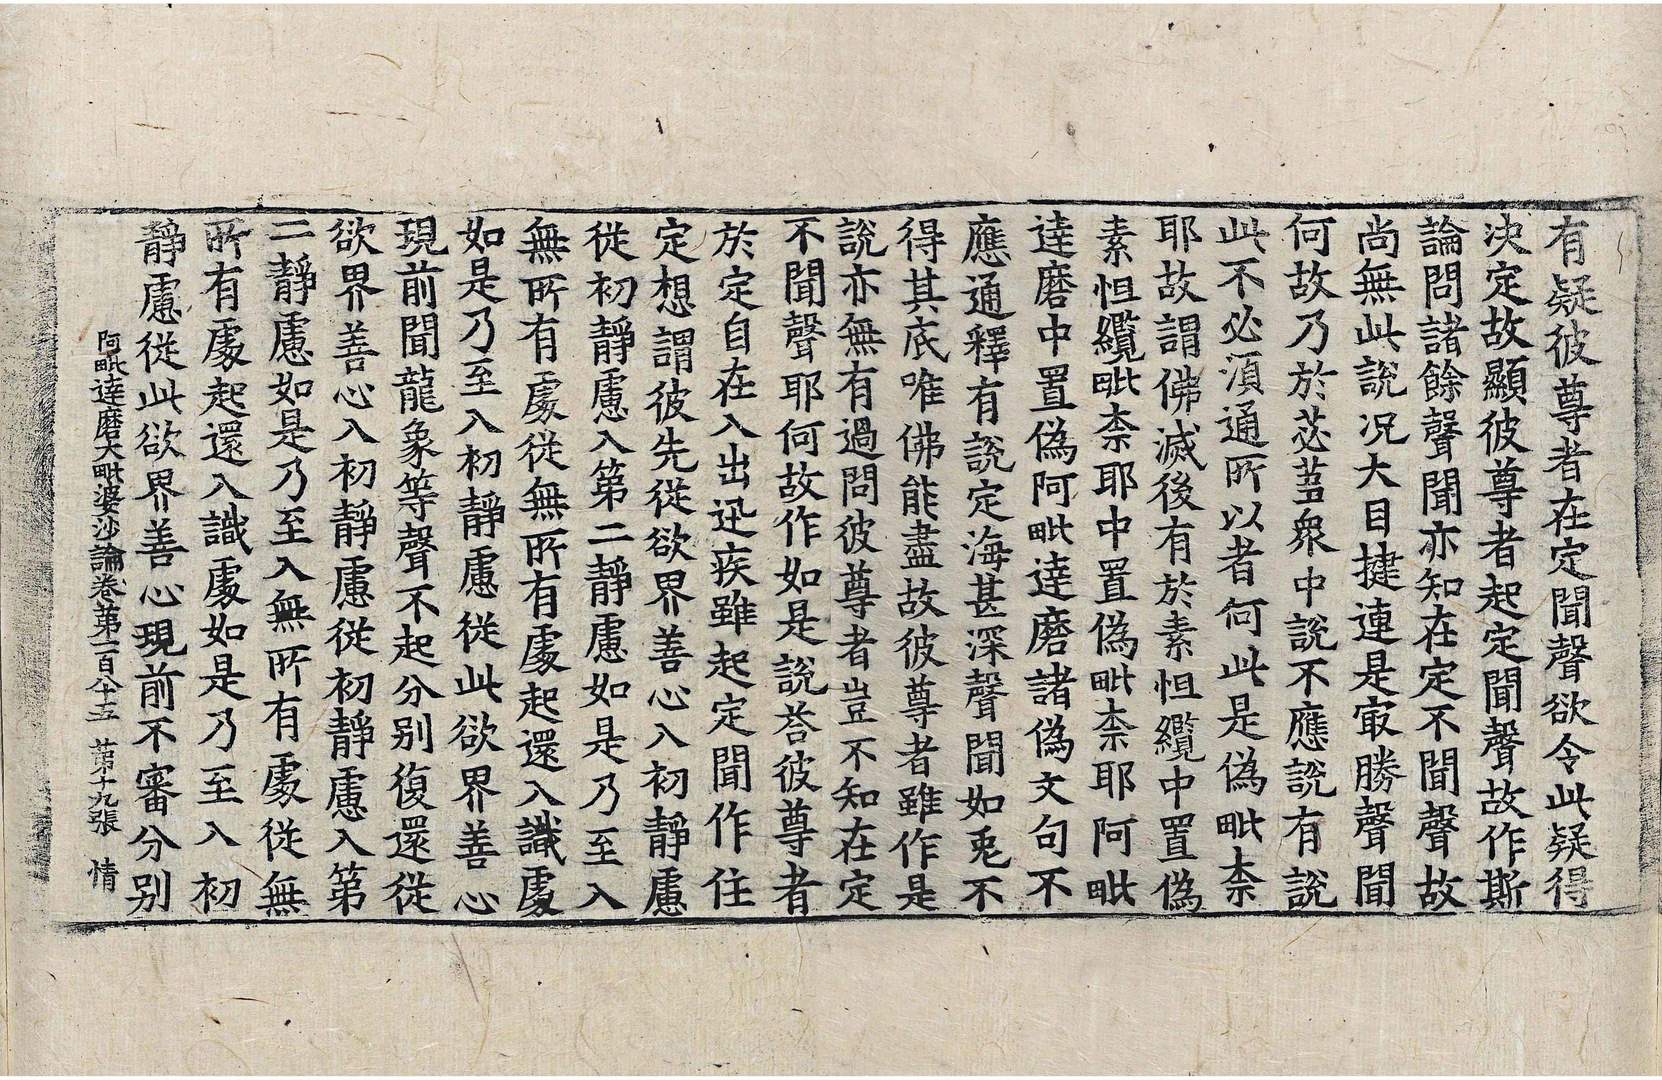 有疑彼尊者在定聞聲欲令此疑得
決定故顯彼尊者起定聞聲故作斯
論問諸餘聲聞亦知在定不聞聲故
尚無此說况大目揵連是㝡勝聲聞
何故乃於苾芻衆中說不應說有說
此不必湏通所以者何此是偽毗柰
耶故謂佛滅後有於素怛纜中置偽
素怛纜毗柰耶中置偽毗柰耶阿毗
達磨中置偽阿毗達磨諸偽文句不
應通釋有說定海甚深聲聞如兎不
得其底唯佛能盡故彼尊者雖作是
說亦無有過問彼尊者豈不知在定
不聞聲耶何故作如是說荅彼尊者
於定自在入出迅疾雖起定聞作住
定想謂彼先從欲界善心入初靜慮
從初靜慮入第二靜慮如是乃至入
無所有處從無所有處起還入識處
如是乃至入初靜慮從此欲界善心
現前聞龍象等聲不起分別復還從
欲界善心入初靜慮從初靜慮入第
二靜慮如是乃至入無所有處從無
所有處起還入識處如是乃至入初
靜慮從此欲界善心現前不審分別
阿毗達磨大毗婆沙論卷苐一百八十五 苐十九張 情